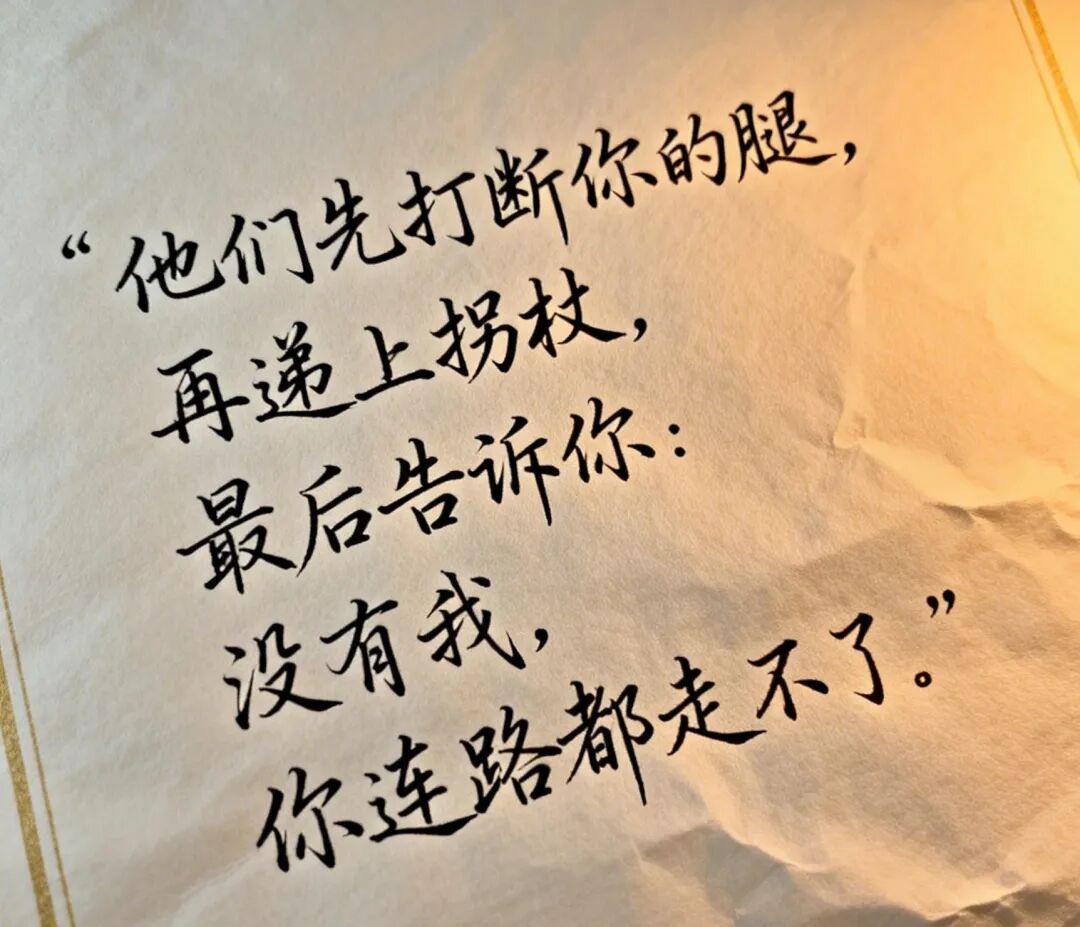 “他们先打断你的腿，
再递上拐杖，
最后告诉你：
没有我，
你连路都走不了。”